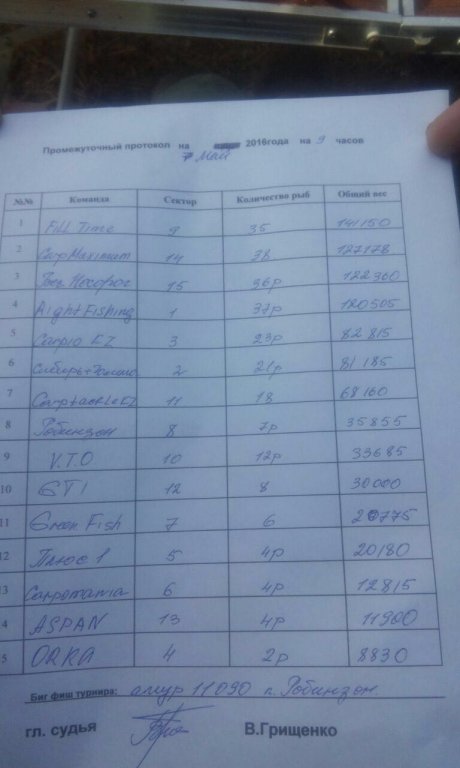 Промежуточный протокол на 7 Май 2016года на 9 часов
№№ Команда Сектор Количество рыб Общий вес
1 Full Time 9 35 141150
2 CarpMaximum 14 28 127178
3 15 36р 122360
4 Right Fishing 1 37р 120505
5 Carpio KZ 3 23р 82815
6 2 21р 81185
7 Carptackle KZ 11 18 68160
8 Робинзон 8 7р 35855
9 V.T.O 10 12р 33685
10 GTI 12 8 30000
11 Green Fish 7 6 20775
12 Плюс 1 5 4р 20180
13 Carpomania 6 4р 12815
4 ASPAN 13 4р 11900
5 ORKA 4 2р 8830
Биг фиш турнира: амур 11090 к. Робинзон.
гл. судья В.Грищенко